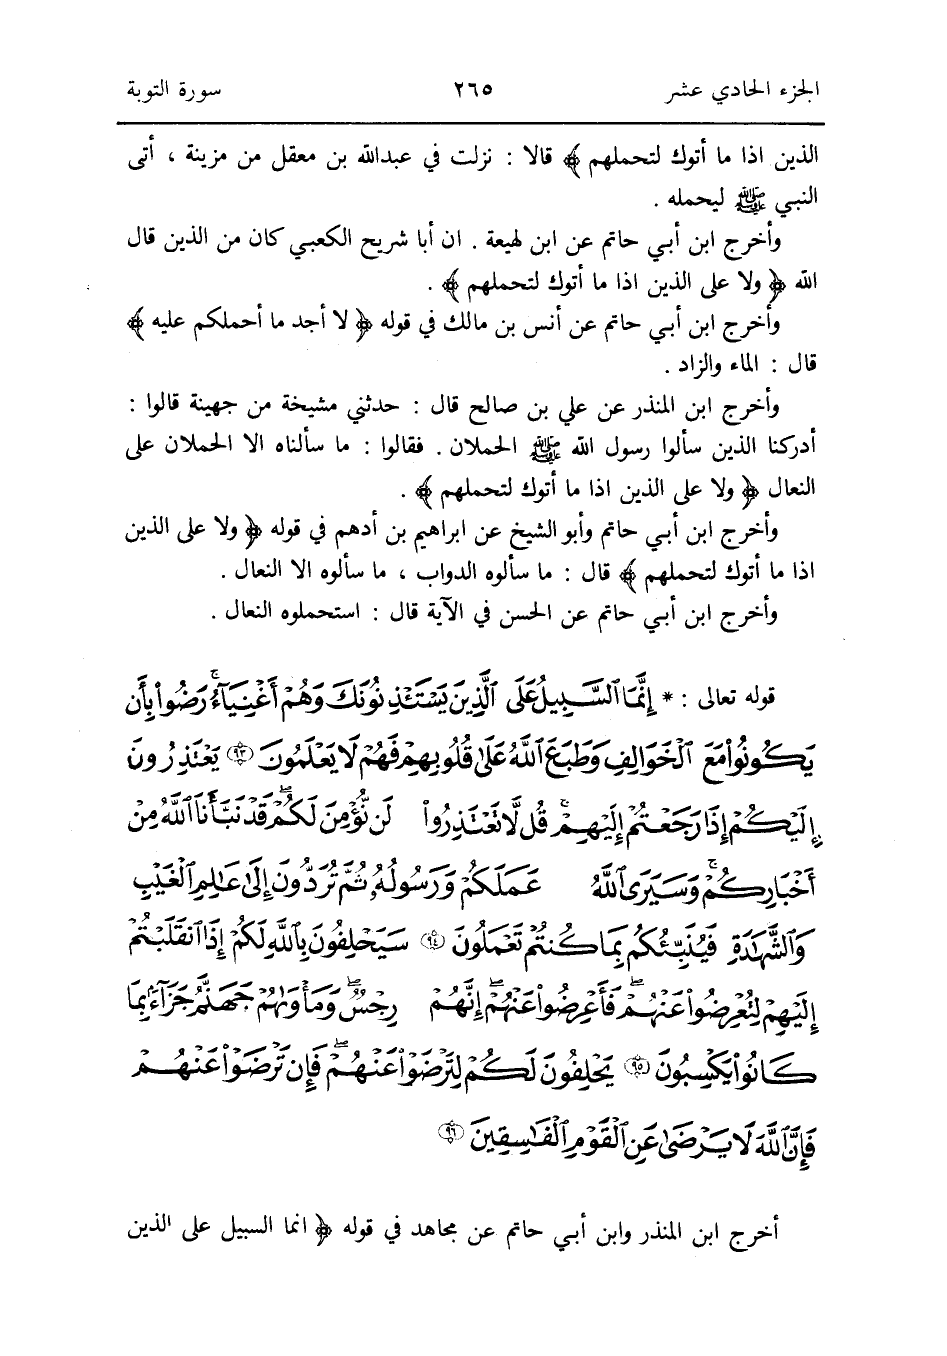 الجزء الحادي عشر ٢٦٥ سورة التوبة
الذين اذا ما أتوك لتحملهم ﴾ قالا : نزلت في عبدالله بن معقل من مزينة ، أتى
النبي ﷺ ليحمله .
وأخرج ابن أبي حاتم عن ابن لهيعة . ان أبا شريح الكعبي كان من الذين قال
الله ﴿ ولا على الذين اذا ما أتوك لتحملهم ﴾ .
وأخرج ابن أبي حاتم عن أنس بن مالك في قوله ﴿ لا أجد ما أحملكم عليه ﴾
قال : الماء والزاد .
وأخرج ابن المنذر عن علي بن صالح قال : حدثني مشيخة من جهينة قالوا :
أدركنا الذين سألوا رسول الله ﷺ الحملان . فقالوا : ما سألناه الا الحملان على
النعال ﴿ ولا على الذين اذا ما أتوك لتحملهم ﴾ .
وأخرج ابن أبي حاتم وأبو الشيخ عن ابراهيم بن أدهم في قوله ﴿ ولا على الذين
اذا ما أتوك لتحملهم ﴾ قال : ما سألوه الدواب ، ما سألوه الا النعال .
وأخرج ابن أبي حاتم عن الحسن في الآية قال : استحملوه النعال .
قوله تعالى : * إِنَّمَا ٱلسَّبِيلُ عَلَى ٱلَّذِينَ يَسْتَـْٔذِنُونَكَ وَهُمْ أَغْنِيَآءُ ۚ رَضُوا۟ بِأَن
يَكُونُوا۟ مَعَ ٱلْخَوَالِفِ وَطَبَعَ ٱللَّهُ عَلَىٰ قُلُوبِهِمْ فَهُمْ لَا يَعْلَمُونَ ٩٣ يَعْتَذِرُونَ
إِلَيْكُمْ إِذَا رَجَعْتُمْ إِلَيْهِمْ ۚ قُل لَّا تَعْتَذِرُوا۟ لَن نُّؤْمِنَ لَكُمْ ۖ قَدْ نَبَّأَنَا ٱللَّهُ مِنْ
أَخْبَارِكُمْ ۚ وَسَيَرَى ٱللَّهُ عَمَلَكُمْ وَرَسُولُهُۥ ثُمَّ تُرَدُّونَ إِلَىٰ عَٰلِمِ ٱلْغَيْبِ
وَٱلشَّهَٰدَةِ فَيُنَبِّئُكُم بِمَا كُنتُمْ تَعْمَلُونَ ٩٤ سَيَحْلِفُونَ بِٱللَّهِ لَكُمْ إِذَا ٱنقَلَبْتُمْ
إِلَيْهِمْ لِتُعْرِضُوا۟ عَنْهُمْ ۖ فَأَعْرِضُوا۟ عَنْهُمْ ۖ إِنَّهُمْ رِجْسٌ ۖ وَمَأْوَىٰهُمْ جَهَنَّمُ جَزَآءًۢ بِمَا
كَانُوا۟ يَكْسِبُونَ ٩٥ يَحْلِفُونَ لَكُمْ لِتَرْضَوْا۟ عَنْهُمْ ۖ فَإِن تَرْضَوْا۟ عَنْهُمْ
فَإِنَّ ٱللَّهَ لَا يَرْضَىٰ عَنِ ٱلْقَوْمِ ٱلْفَٰسِقِينَ ٩٦
أخرج ابن المنذر وابن أبي حاتم عن مجاهد في قوله ﴿ انما السبيل على الذين